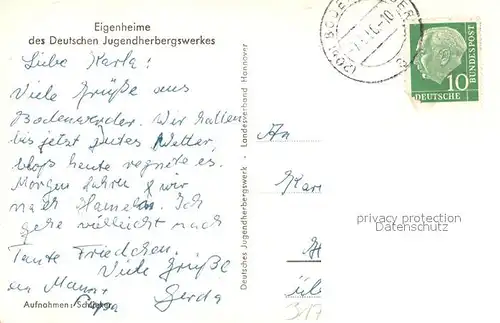 Eigenheime
des Deutschen Jugendherbergswerkes
Liebe Karla!
Viele Grüße aus
Bodenwerder. Wir hatten
bis jetzt gutes Wetter,
bloß heute regnete es.
Morgen fahren wir
nach Hameln. Ich
gehe vielleicht nach
Tante Friedchen.
Viele Grüße
an Mama
Papa Gerda
Aufnahmen:
Deutsches Jugendherbergswerk - Landesverband Hannover
(20a) BODE
10
DEUTSCHE
BUNDESPOST
An
privacy protection
Datenschutz